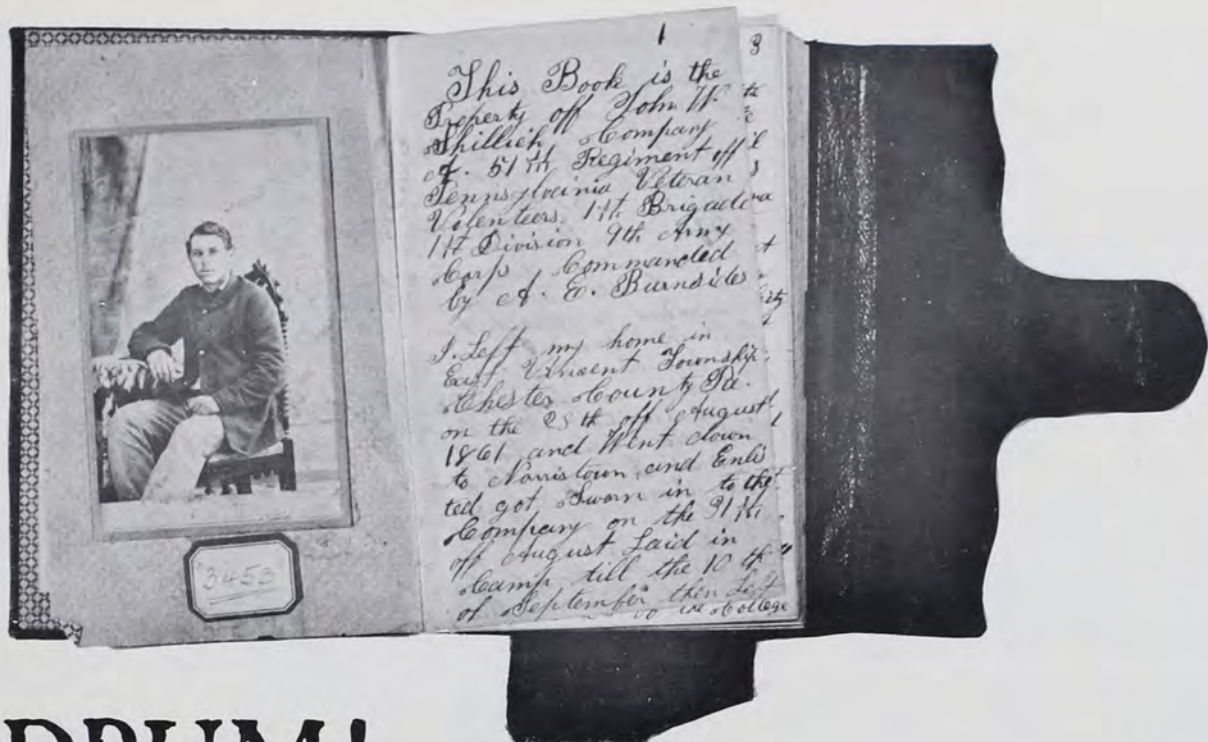 1
3
This Book is the
Property off John W.
Shillich Company
A. 51th Regiment off
Pennsylvania Veteran
Volenteers. 1st. Brigade
1st Division 9th Army
Corps Commanded
by A. E. Burnside
I. Left my home in
East Vincent Township.
Chester County Pa.
on the 28th off August
1861 and Went down
to Norristown and Enlis
ted got Sworn in to the
Company on the 31th
off August Laid in
Camp till the 10th
of September then Left
College
3453
DRUM!